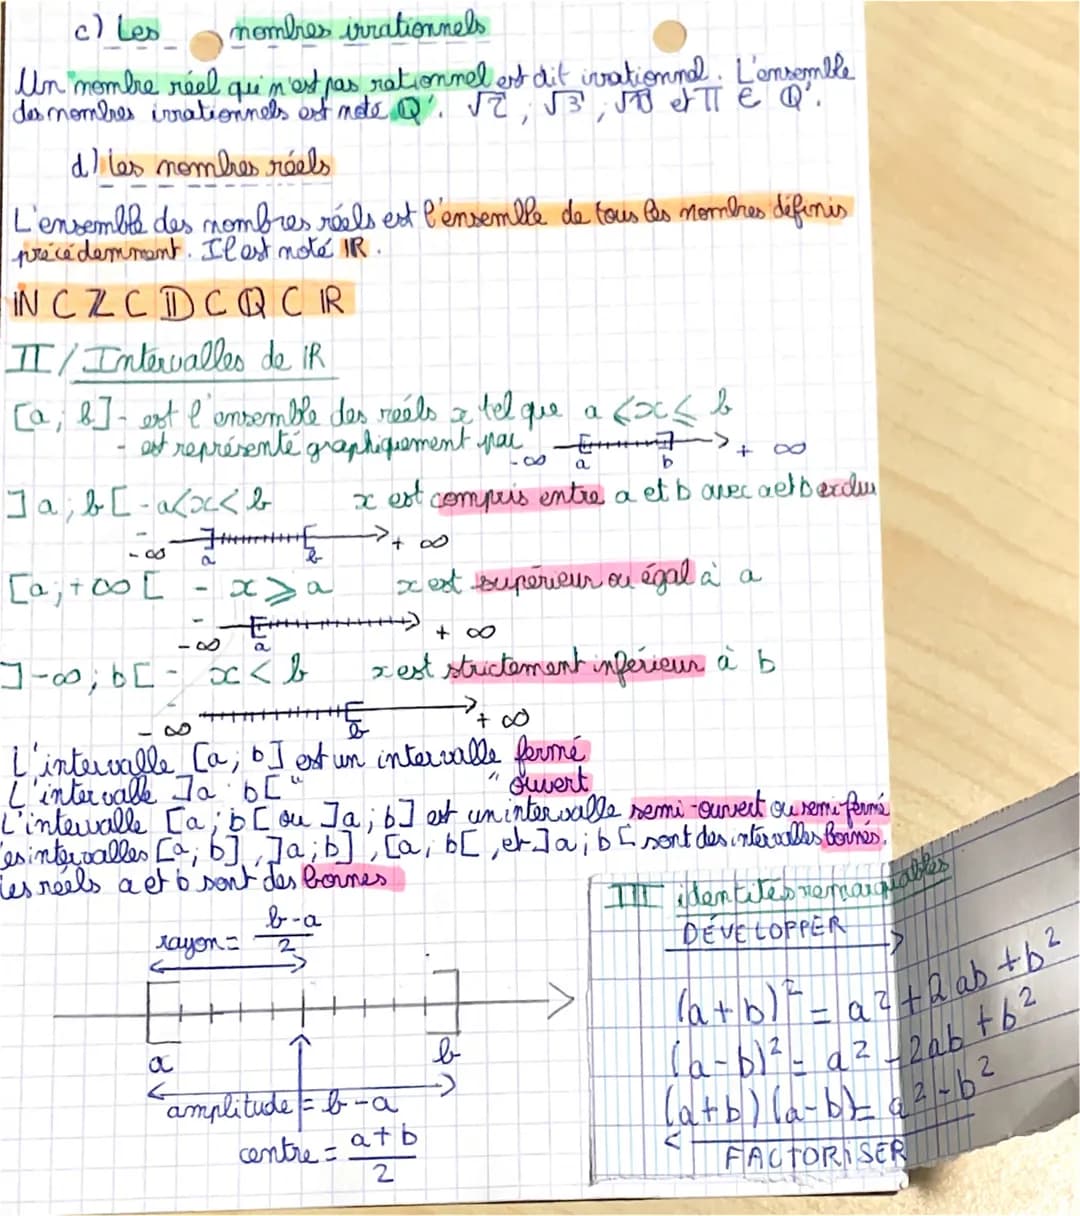 c) Les nombres irrationnels
Un nombre réel qui n'est pas rationnel est dit irrationnel. L'ensemble
des nombres irrationnels est noté Q'. √2, √3, √10 et π ∈ Q'.
d) les nombres réels
L'ensemble des nombres réels est l'ensemble de tous les nombres définis
précédemment. Il est noté IR.
IN ⊂ Z ⊂ D ⊂ Q ⊂ IR
II / Intervalles de IR
[a ; b] - est l'ensemble des réels x tel que a ⩽ x ⩽ b
- est représenté graphiquement par
-∞ a b + ∞
]a ; b[ - a<x<b x est compris entre a et b avec a et b exclu
-∞ a b + ∞
[a ; +∞[ - x ⩾ a x est supérieur ou égal à a
-∞ a + ∞
]-∞ ; b[ - x < b x est strictement inférieur à b
- ∞ b + ∞
L'intervalle [a ; b] est un intervalle fermé
L'intervalle ]a b[ " " ouvert
L'intervalle [a ; b[ ou ]a ; b] est un intervalle semi-ouvert ou semi fermé
es intervalles [a ; b], ]a ; b], [a ; b[, et ]a ; b[ sont des intervalles bornés.
Les réels a et b sont des bornes
rayon = b-a / 2
a b
amplitude = b-a
centre = a+b / 2
III identités remarquables
DÉVELOPPER
(a+b)² = a² + 2ab + b²
(a-b)² = a² - 2ab + b²
(a+b)(a-b) = a² - b²
FACTORISER